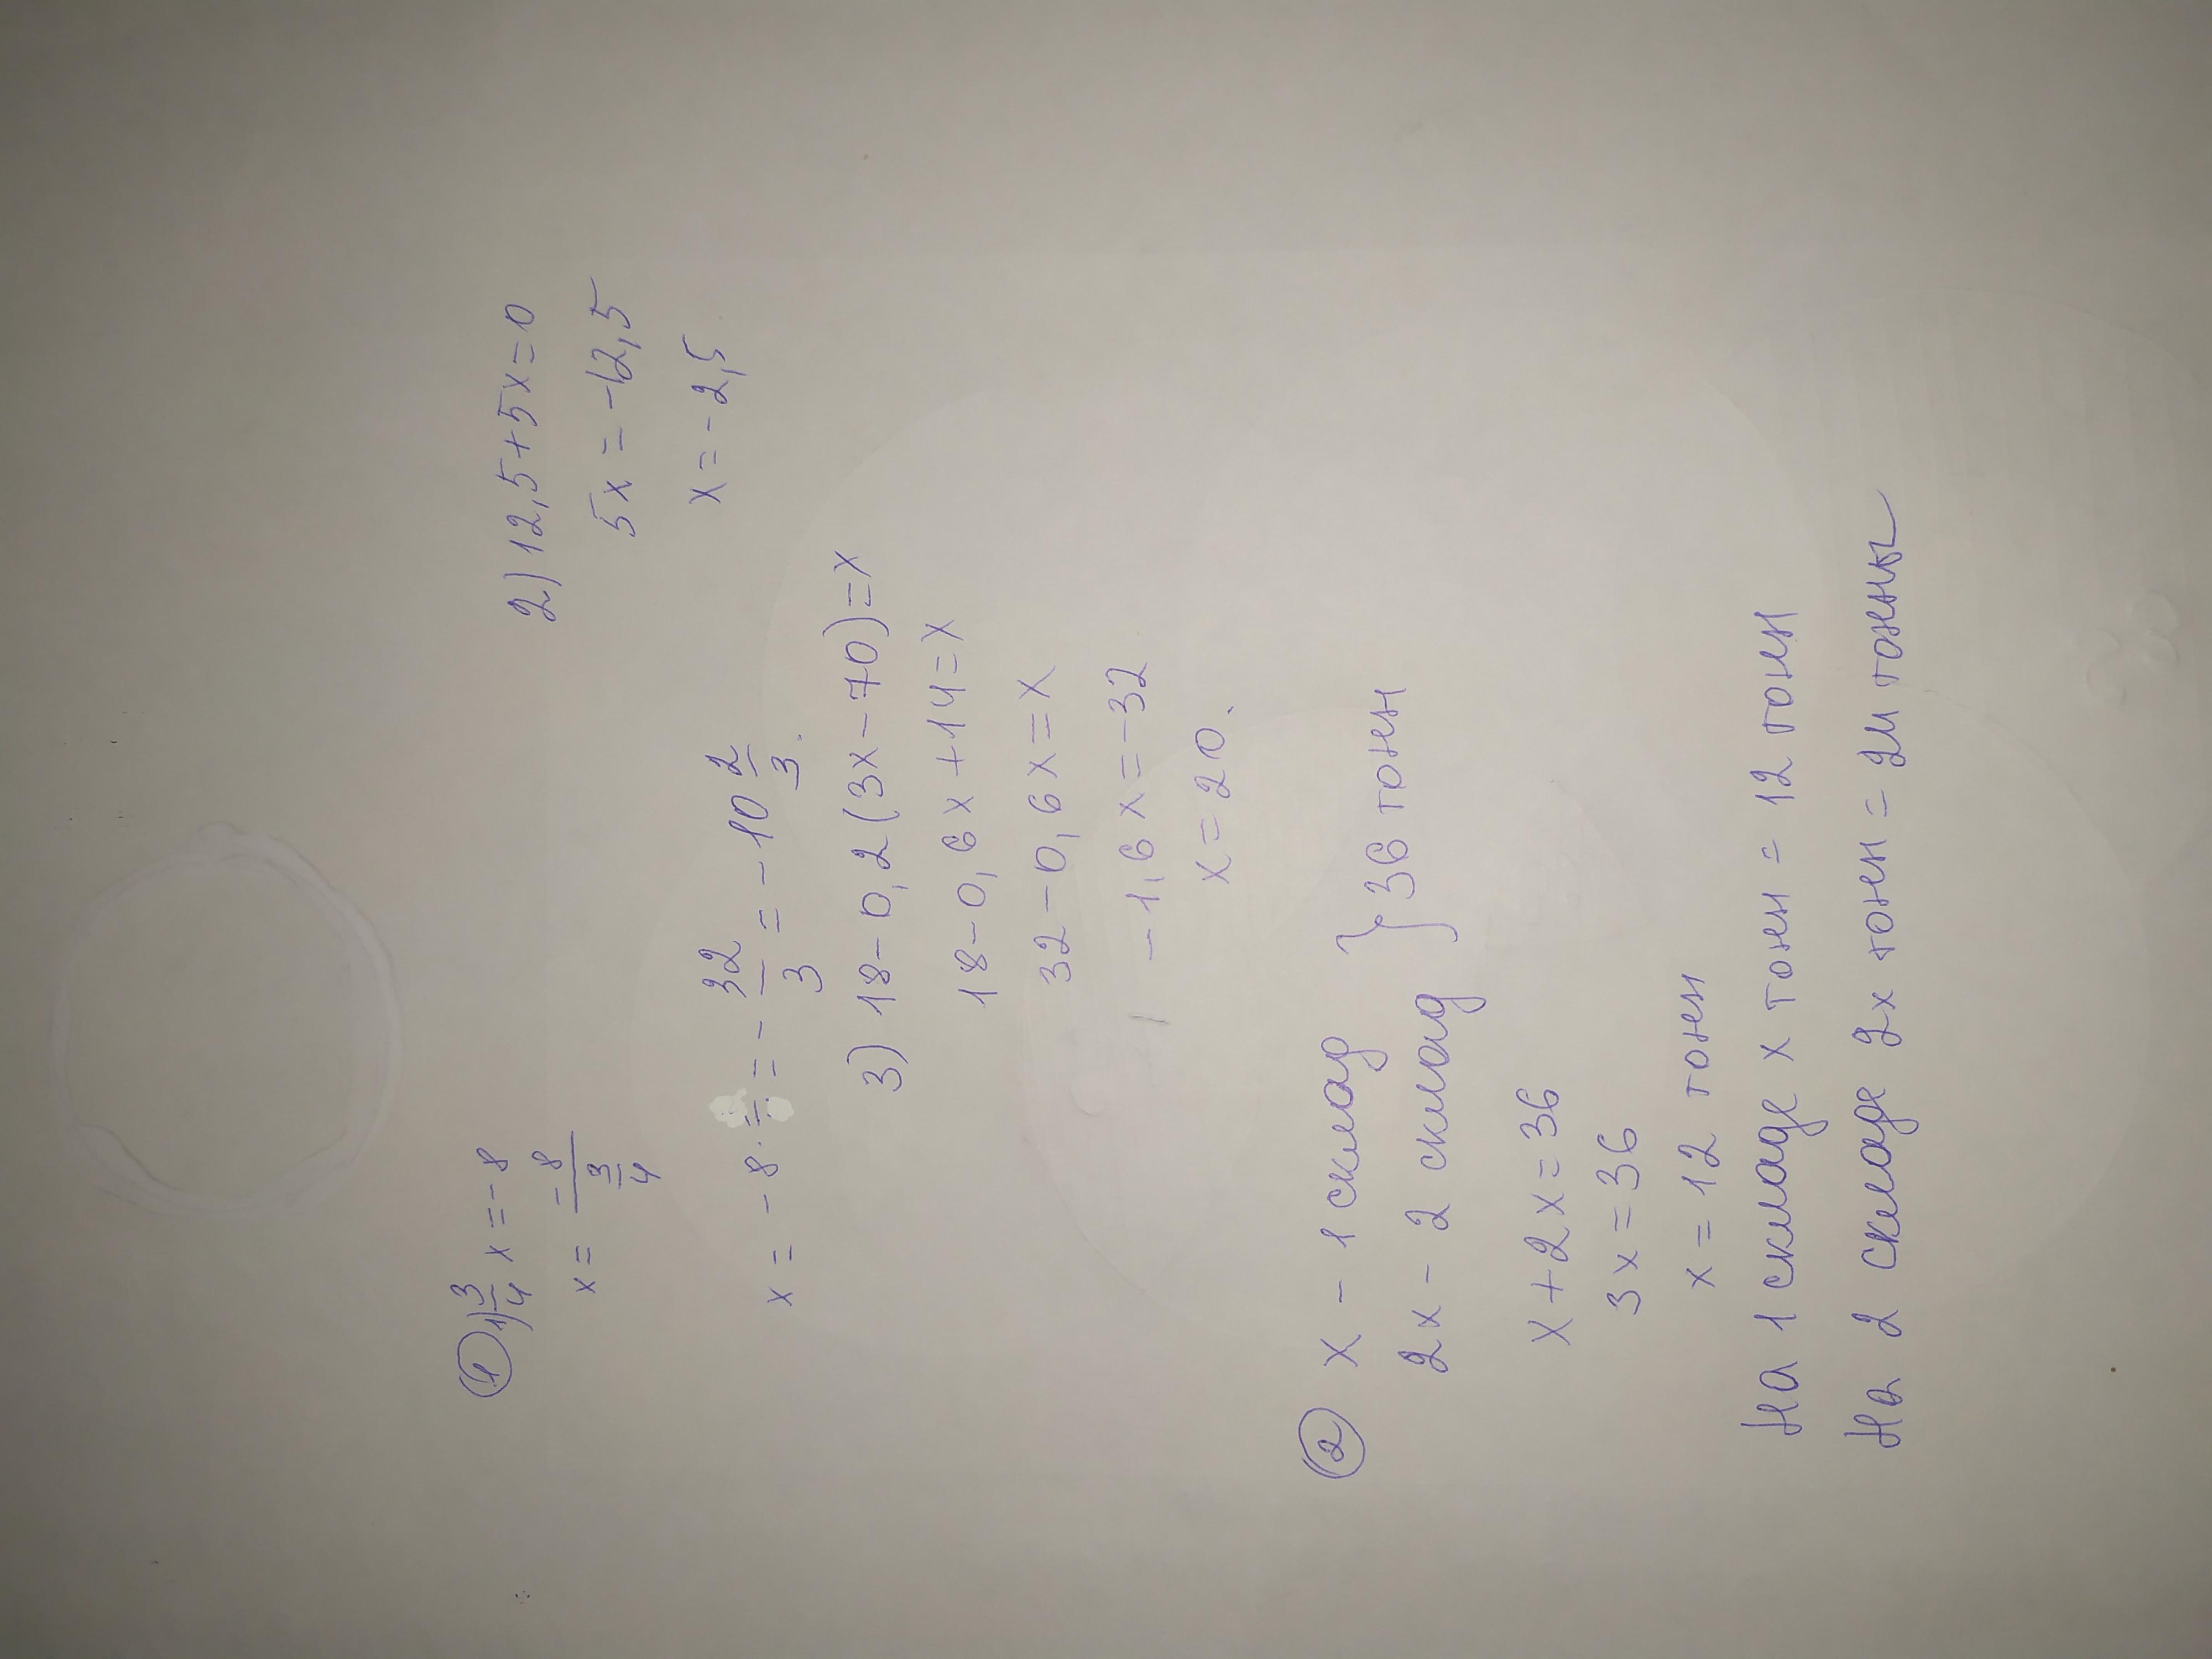 ① 1) 3/4 x = -8
x = -8 / (3/4)
x = -8 · = = -32/3 = -10 2/3.
2) 12,5+5x=0
5x = -12,5
x = -2,5
3) 18-0,2(3x-70)=x
18-0,6x+14=x
32-0,6x=x
-1,6x=-32
x=20.
② x - 1 склад } 36 тонн
2x - 2 склад
x+2x=36
3x=36
x=12 тонн
На 1 складе x тонн = 12 тонн
На 2 складе 2x тонн = 24 тонны